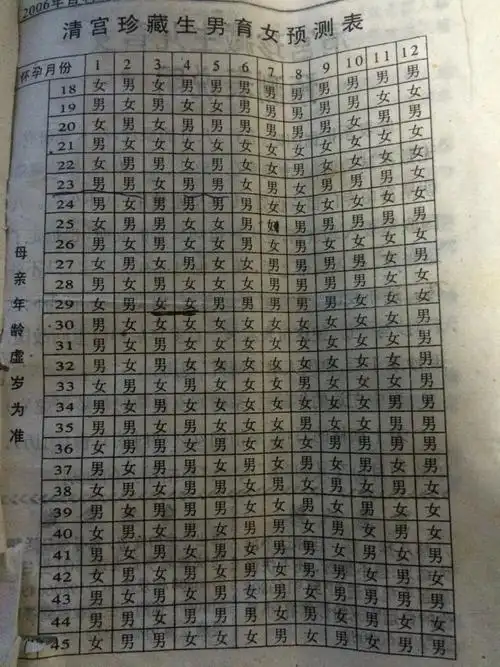 2006年百
清宫珍藏生男育女预测表
怀孕月份 1 2 3 4 5 6 7 8 9 10 11 12
18 女 男 女 男 男 男 男 男 男 男 男 男
19 男 女 男 女 女 男 男 男 男 男 女 女
20 女 男 女 男 男 男 男 男 男 女 男 男
21 男 女 女 女 女 女 女 女 女 女 女 女
22 女 男 男 女 男 女 女 男 女 女 女 女
23 男 男 女 男 男 女 男 女 男 男 男 女
24 男 女 男 男 男 男 女 女 女 女 女 女
25 女 男 男 女 女 男 女 男 男 男 男 男
26 女 男 女 男 男 女 男 女 女 女 女 女
27 女 男 女 男 女 女 男 男 男 男 女 男
28 女 男 女 男 男 男 男 男 男 女 女 女
29 女 男 女 女 男 男 男 男 男 女 女 女
30 男 女 女 女 女 女 女 女 女 女 女 男
31 男 女 男 女 女 女 女 女 女 女 女 男
32 男 女 男 女 女 女 女 女 女 女 女 男
33 女 男 女 男 女 女 女 男 女 女 女 男
34 男 女 男 女 女 女 女 女 女 女 男 男
35 男 男 女 男 女 女 女 男 女 女 男 男
36 女 男 男 女 男 女 女 女 男 男 男 男
37 男 女 男 男 女 男 女 男 女 男 女 男
38 女 男 女 男 男 女 男 女 男 女 男 女
39 男 女 男 男 男 女 女 男 女 男 女 女
40 女 男 女 男 女 男 男 女 男 女 男 女
41 男 女 男 女 男 女 男 男 女 男 女 男
42 女 男 女 男 女 男 女 男 男 女 男 女
43 男 女 男 女 男 女 男 女 男 男 男 男
44 男 男 女 男 男 男 女 男 女 男 女 女
45 女 男 男 女 女 女 男 女 男 女 男 男
母亲年龄虚岁为准